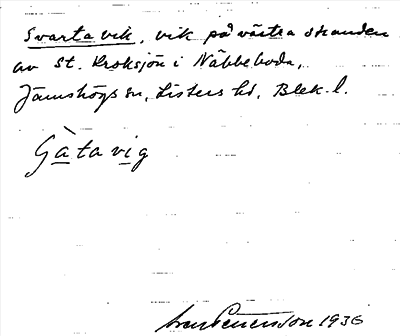 Svarta vik, vik på västra stranden
av St. Kroksjön i Näbbeboda,
Jämshögs sn, Listers hd, Blek. l.
Gàtavig
1936